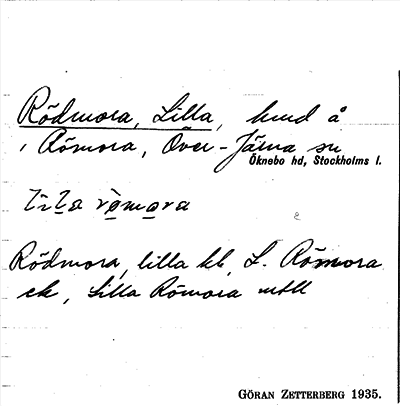 Rödmora, Lilla, hmd å
i Römora, Över-Järna sn
Öknebo hd, Stockholms l.
lila römora
Rödmora, lilla kb, L. Römora
ek, Lilla Römora mtll
GÖRAN ZETTERBERG 1935.